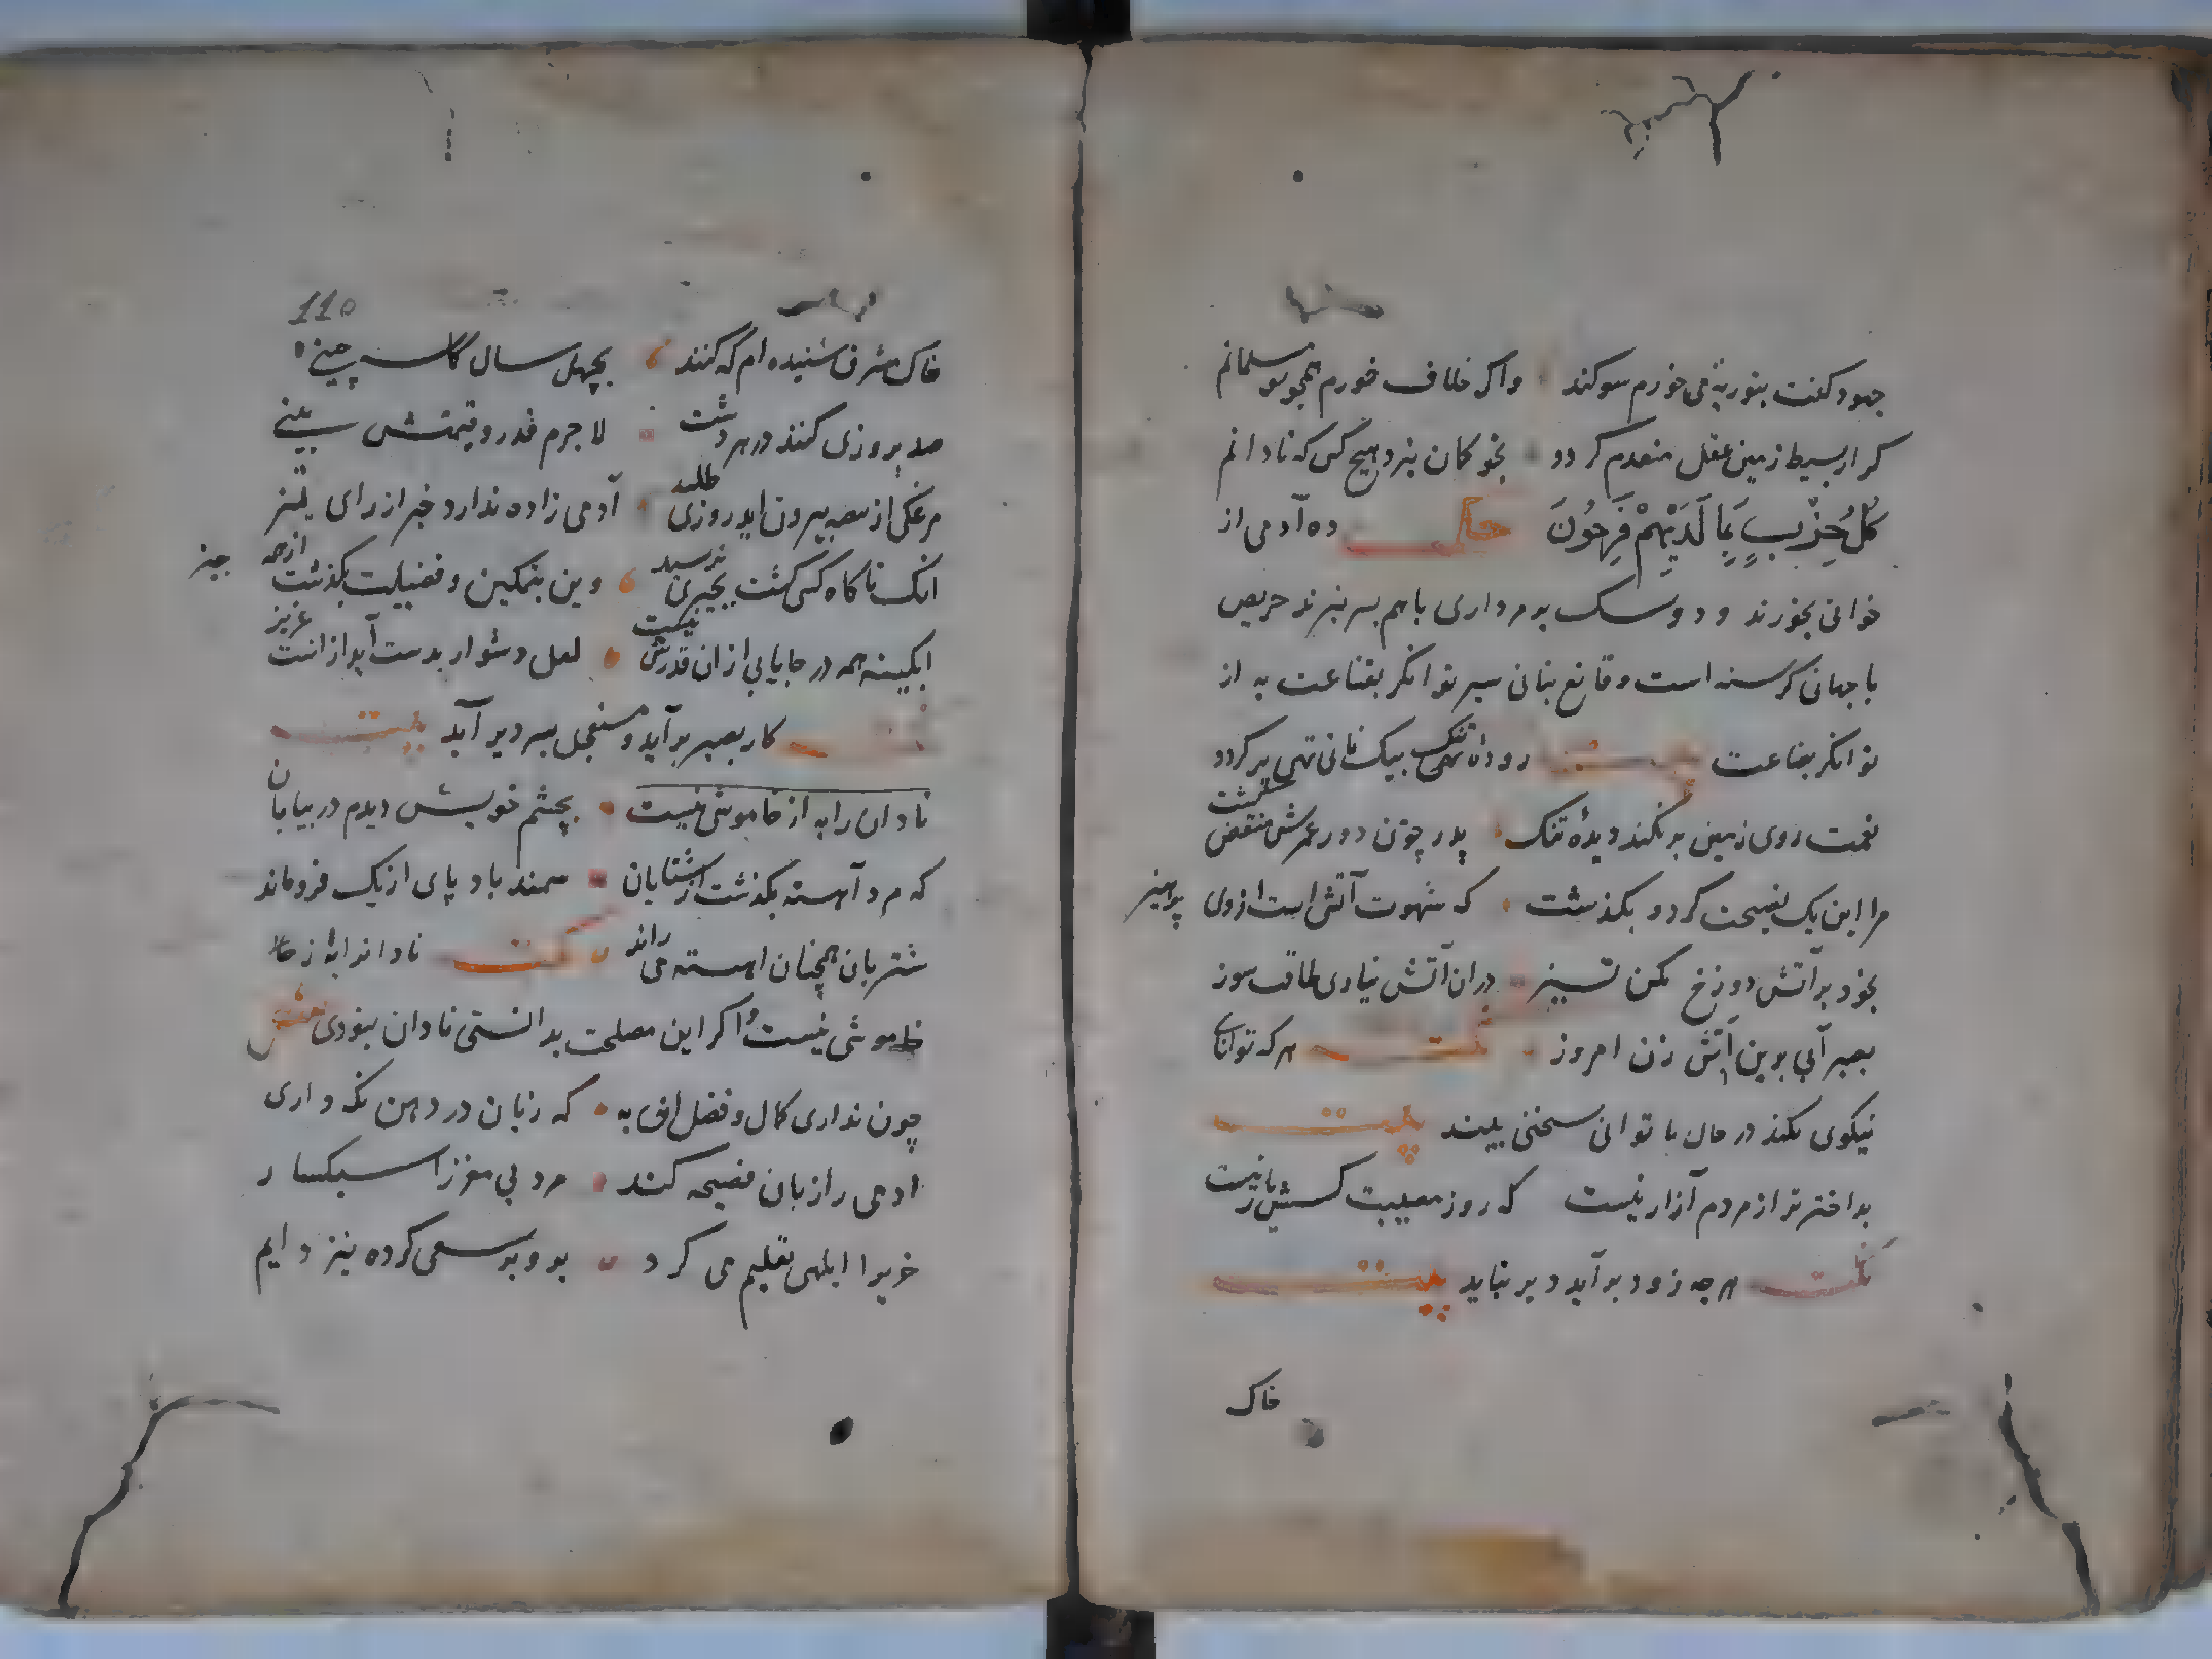 جهود کفت بتوریة می خورم سوکند واکر خلاف خورم همچو تو مسلمانم
کر از بسیط زمین عقل منعدم کردد بخو کمان نبرد هیچ کس که نادانم
كُلُّ حِزْبٍ بِمَا لَدَيْهِمْ فَرِحُونَ ده آدمی از
خوانی بخورند و دو سک بر مرداری با هم بسر نبرند حریص
با جهان کرسنه است و قانع بنانی سیر توانکر بقناعت به از
توانکر بضاعت رودهٔ تنک بیک نانی تهی پر کردد
نعمت روی زمین پر نکند دیدهٔ تنک پدر چون دور عمرش منقضی کشت
مرا این یک نصیحت کرد و بکذشت که شهوت آتش است از وی پرهیز
بخود بر آتش دوزخ مکن تیز دران آتش نیاری طاقت سوز
بصبر آبی برین آتش زن امروز هرکه توانای
نیکوی نکند در حال ناتوانی سختی بیند بیت
بد اختر تر از مردم آزار نیست که روز مصیبت کسش یار نیست
نکت هرچه زود بر آید دیر نپاید بیت
خاک
110
خاک مشرق شنیده ام که کنند بچهل سال کاسه چینی
صد بروزی کنند در مردشت لاجرم قدر و قیمتش بینی
مرغک از بیضه بیرون اید روزی طلبد آدمی زاده ندارد خبر از رای تمیز
انک ناکاه کسی کشت بچیزی نرسید وین بتمکین و فضیلت بکذشت از همه چیز
ابکینه همه در جا یابی از ان قدرش نیست لعل دشوار بدست آید از انست عزیز
کار بصبر برآید و مستعجل بسر دیر آید بیت
نادان را به از خاموشی نیست بچشم خویش دیدم در بیابان
که مرد آهسته بکذشت از شتابان سمند باد پای از تک فروماند
شتربان همچنان اهسته می راند نکت نادانرا به از
خاموشی نیست و اکر این مصلحت بدانستی نادان نبودی
چون نداری کمال و فضل ان به که زبان در دهن نکه داری
ادمی را زبان فضیحه کند مرد بی مغز را سبکسار
خریرا ابلهی تعلیم می کرد برو بر سعی کرده نیز دایم